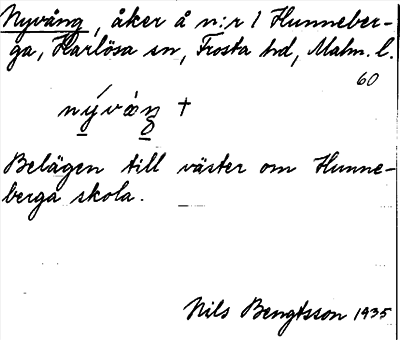 Nyvång, åker å n:r 1 Hunneber-
ga, Harlösa sn, Frosta hd, Malm. l.
60
nývàŋ †
Belägen till väster om Hunne-
berga skola.
Nils Bengtsson 1935